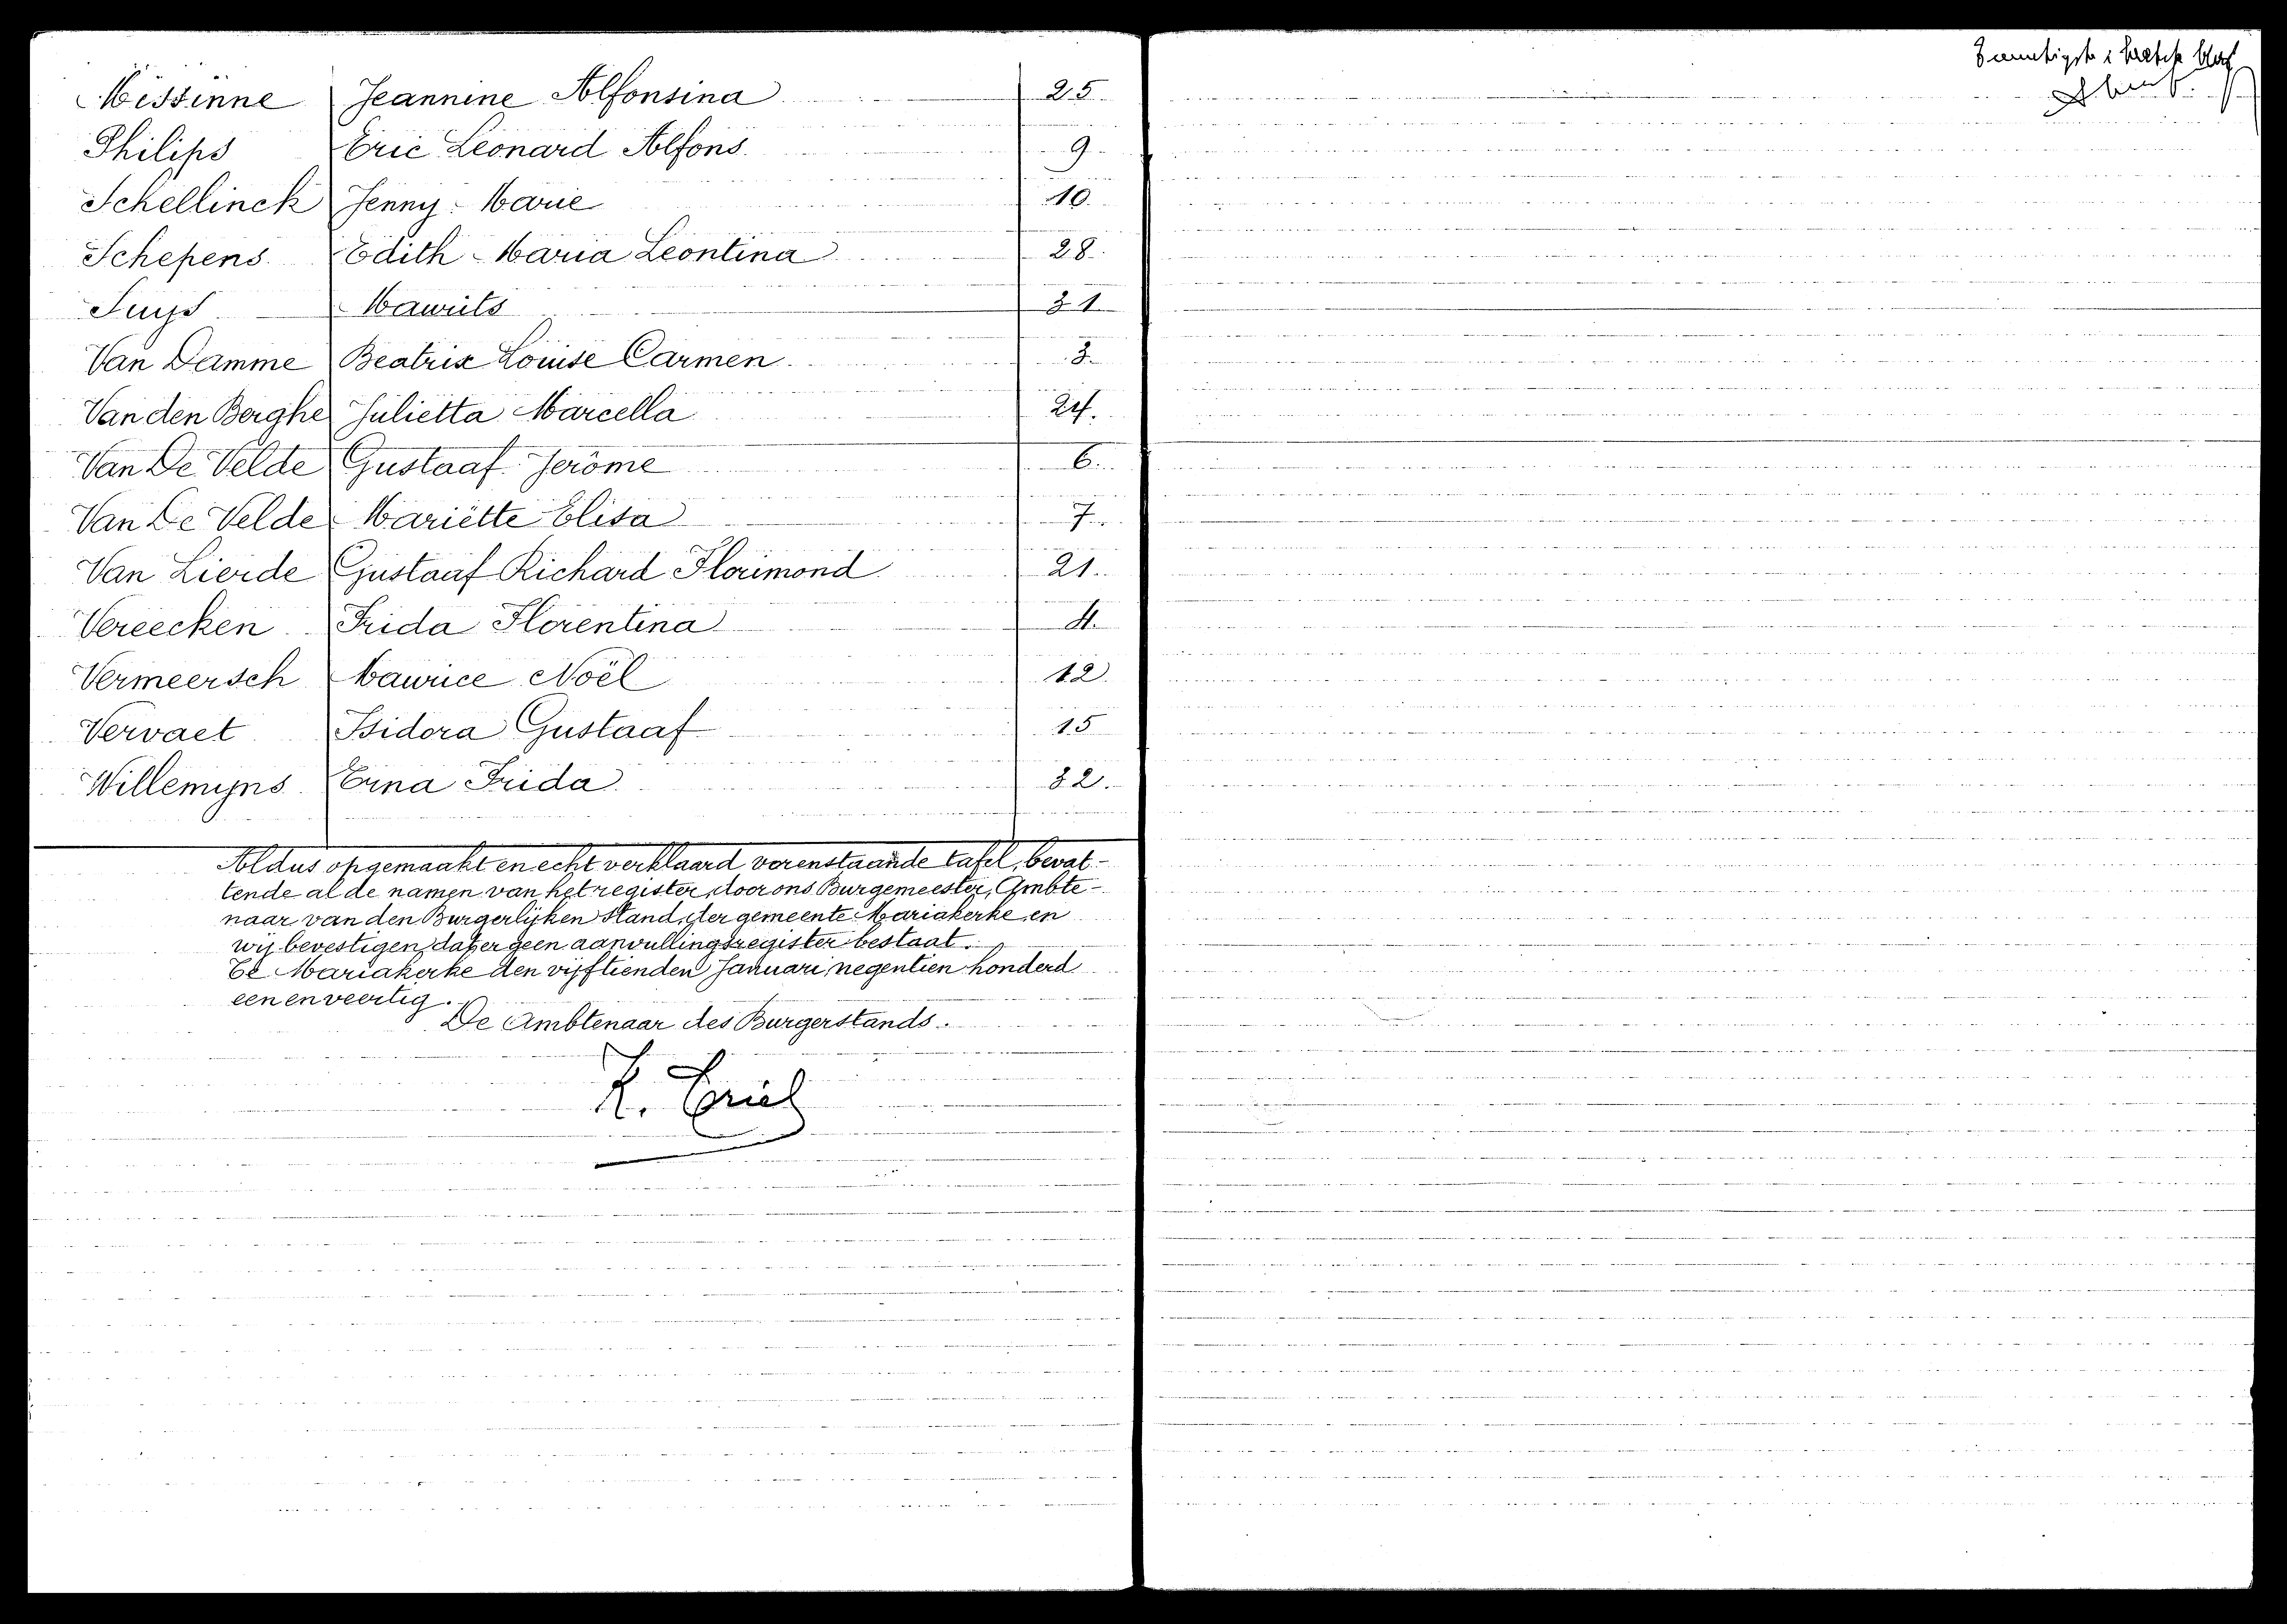 Missinne Jeannine Alfonsina 25
Philips Eric Leonard Alfons. 9
Schellinck Jenny Marie 10.
Schepens Edith Maria Leontina 28.
Suys Maurits 31
Van Damme Beatrix Louise Carmen 3.
Van den Berghe Julietta Marcella 24.
Van De Velde Gustaaf Jerôme 6.
Van De Velde Mariëtte Elisa 7.
Van Lierde Gustaaf Richard Florimond 21.
Vereecken Frida Florentina 4.
Vermeersch Maurice Noël 12.
Vervaet Isidora Gustaaf 15
Willemyns Erna Frida 32.
Aldus opgemaakt en echt verklaard vorenstaande tafel, bevat-
tende al de namen van het register, door ons Burgemeester, Ambte-
naar van den Burgerlijken Stand, der gemeente Mariakerke, en
wij bevestigen, dat er geen aanvullingsregister bestaat.
Te Mariakerke den vijftienden Januari negentien honderd
een en veertig.
De Ambtenaar des Burgerstands.